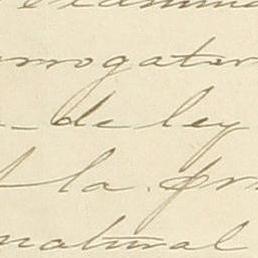 rrogator
de ley
la pr
natural